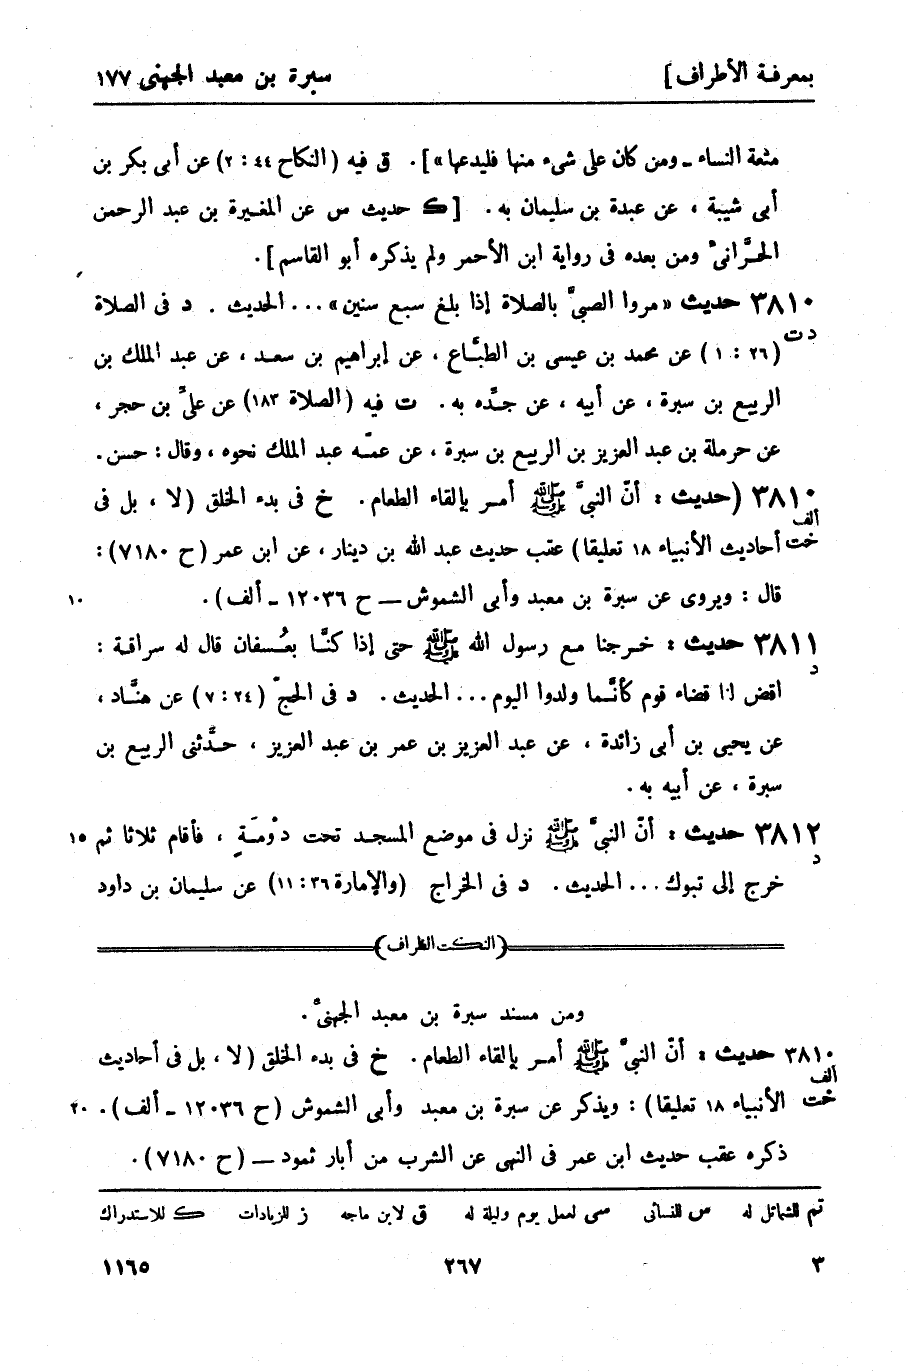 بمعرفة الأطراف] سبرة بن معبد الجهنى ١٧٧
متعة النساء ــ ومن كان على شىء منها فليدعها»]. ق فيه (النكاح ٤٤ : ٢) عن أبى بكر بن
أبى شيبة ، عن عبدة بن سليمان به. [ك حديث س عن المغيرة بن عبد الرحمن
الحَرَّانىّ ومن بعده فى رواية ابن الأحمر ولم يذكره أبو القاسم].
٣٨١٠ حديث «مروا الصبىَّ بالصلاة إذا بلغ سبع سنين»... الحديث . د فى الصلاة
د ت (٢٦ : ١) عن محمد بن عيسى بن الطبَّاع ، عن إبراهيم بن سعد ، عن عبد الملك بن
الربيع بن سبرة ، عن أبيه ، عن جدَّه به. ت فيه (الصلاة ١٨٣) عن علىّ بن حجر ،
عن حرملة بن عبد العزيز بن الربيع بن سبرة ، عن عمّه عبد الملك نحوه ، وقال : حسن.
٣٨١٠ (حديث : أنّ النبىَّ ﷺ أمر بإلقاء الطعام. خ فى بدء الخلق (لا ، بل فى
ألف
خت أحاديث الأنبياء ١٨ تعليقا) عقب حديث عبد الله بن دينار ، عن ابن عمر (ح ٧١٨٠) :
قال : ويروى عن سبرة بن معبد وأبى الشموش ــ ح ١٢٠٣٦ ــ ألف). ١٠
٣٨١١ حديث : خرجنا مع رسول الله ﷺ حتى إذا كنَّا بعُسفان قال له سراقة :
د
اقض لنا قضاء قوم كأنَّما ولدوا اليوم... الحديث. د فى الحجّ (٢٤ : ٧) عن هنَّاد ،
عن يحيى بن أبى زائدة ، عن عبد العزيز بن عمر بن عبد العزيز ، حدَّثنى الربيع بن
سبرة ، عن أبيه به.
٣٨١٢ حديث : أنّ النبىَّ ﷺ نزل فى موضع المسجد تحت دَوْمَةٍ ، فأقام ثلاثا ثم ١٥
د
خرج إلى تبوك... الحديث. د فى الخراج (والإمارة ٣٦ : ١١) عن سليمان بن داود
(النكت الظراف)
ومن مسند سبرة بن معبد الجهنىّ.
٣٨١٠ حديث : أنّ النبىَّ ﷺ أمر بإلقاء الطعام. خ فى بدء الخلق (لا ، بل فى أحاديث
ألف
خت الأنبياء ١٨ تعليقا) : ويذكر عن سبرة بن معبد وأبى الشموش (ح ١٢٠٣٦ ــ ألف). ٢٠
ذكره عقب حديث ابن عمر فى النهى عن الشرب من أبار ثمود ــ (ح ٧١٨٠).
تم للشمائل له س للنسائى سى لعمل يوم وليلة له ق لابن ماجه ز للزيادات ك للاستدراك
٣ ٢٦٧ ١١٦٥